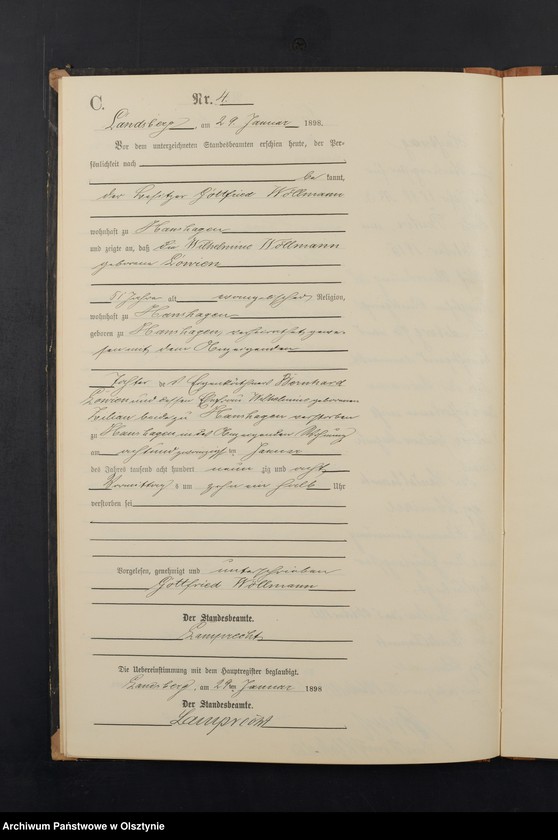 C.
Nr. 4.
Landsberg, am 29. Januar 1898.
Vor dem unterzeichneten Standesbeamten erschien heute, der Per-
sönlichkeit nach
be kannt,
der Besitzer Gottfried Wöllmann
wohnhaft zu Hanshagen
und zeigte an, daß die Wilhelmine Wöllmann
geborene
51 Jahre alt evangelischer Religion,
wohnhaft zu Hanshagen
geboren zu Hanshagen, verheirathet gewe-
sen mit dem Anzeigenden
Tochter des Eigenkäthners Bernhard
und dessen Ehefrau Wilhelmine geborenen
Kilian beide zu Hanshagen verstorben
zu Hanshagen in des Anzeigenden Wohnung
am achtundzwanzigsten Januar
des Jahres tausend acht hundert neun zig und acht
Vormittags um zehn ein halb Uhr
verstorben sei
Vorgelesen, genehmigt und unterschrieben
Gottfried Wöllmann
Der Standesbeamte.
Lamprecht
Die Uebereinstimmung mit dem Hauptregister beglaubigt.
Landsberg, am 29ten Januar 1898
Der Standesbeamte.
Lamprecht
Archiwum Państwowe w Olsztynie